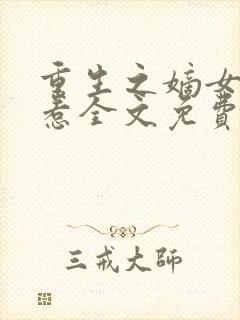 重生之嫡女
惹全文免费
三戒大师